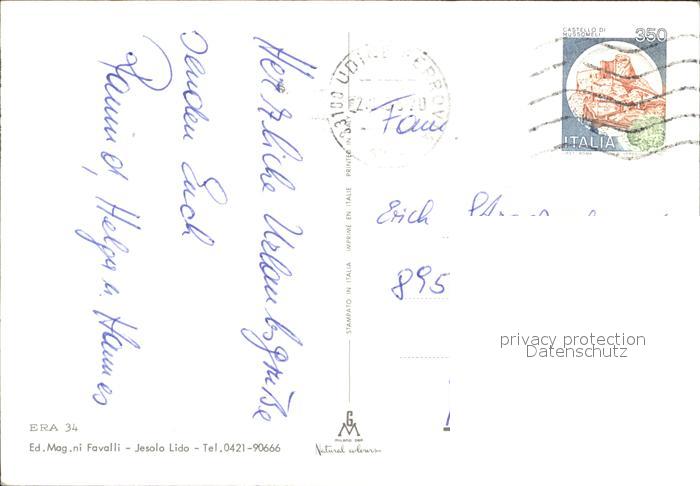 Herzliche Urlaubsgrüße
senden Euch
Helga u. Hannes
CASTELLO DI
MUSSOMELI
350
ITALIA
33100 UDINE
Fam
Erich
895
PRINTED IN ITALIE
IMPRIMÉ EN ITALIE
STAMPATO IN ITALIA
privacy protection
Datenschutz
ERA 34
Ed. Mag.ni Favalli - Jesolo Lido - Tel. 0421-90666
G
M
Natural colours